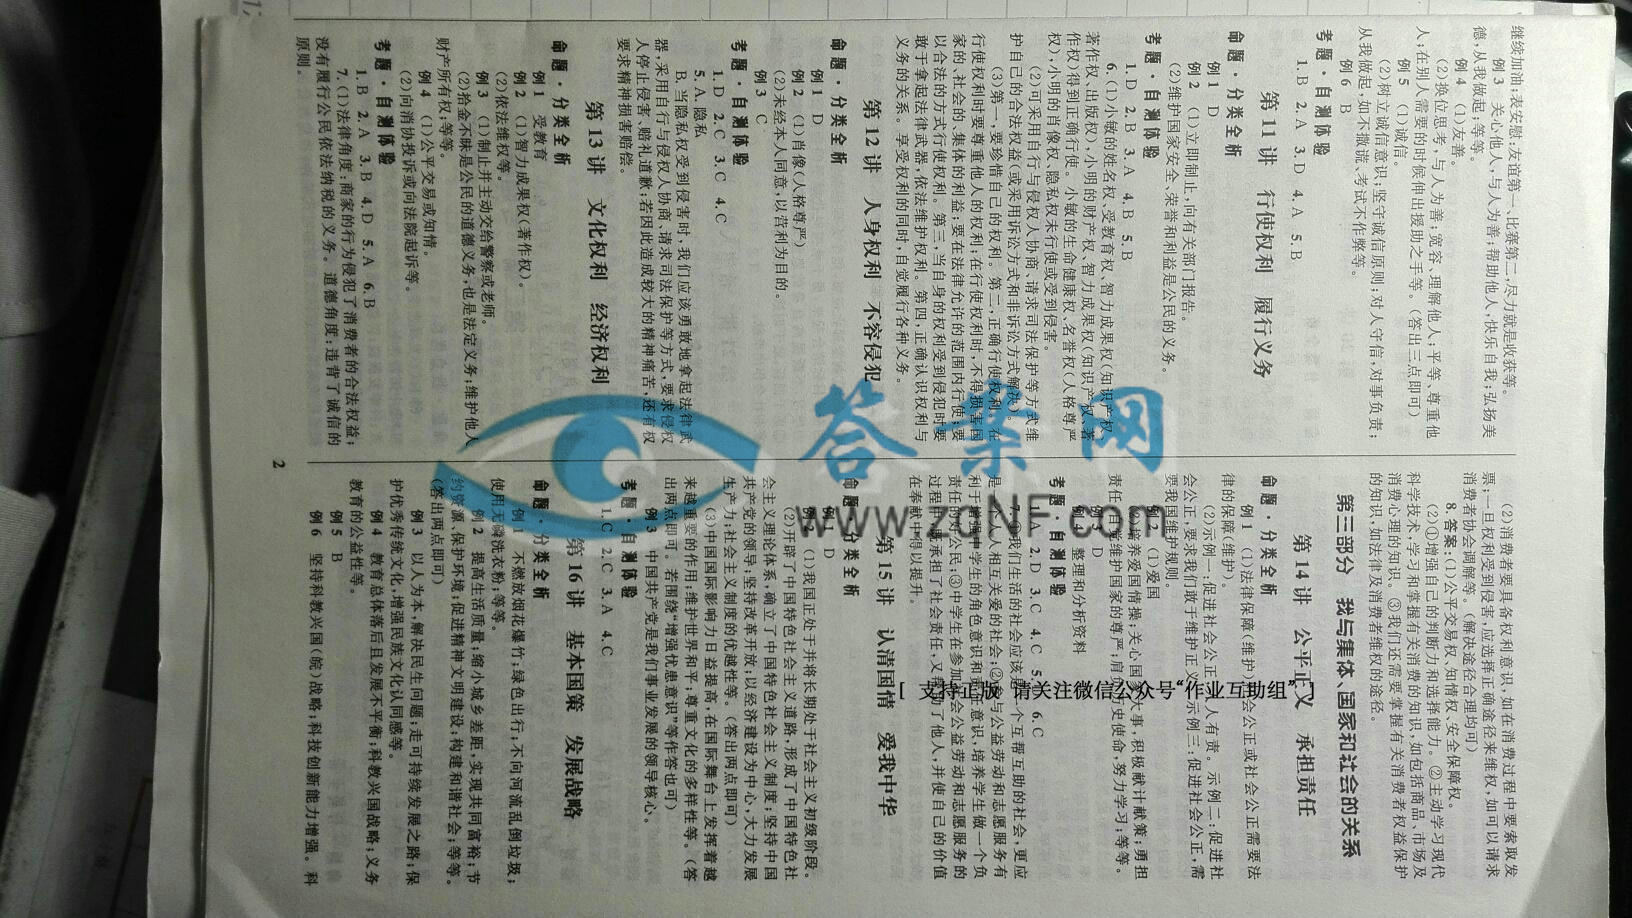 继续加油；表安慰：友谊第一、比赛第二，尽力就是收获等。
例 3　关心他人，与人为善；帮助他人，快乐自我；弘扬美
德，从我做起；等等。
例 4　(1)友善。
(2)换位思考，与人为善；宽容、理解他人；平等、尊重他
人；在别人需要的时候伸出援助之手等。(答出三点即可)
例 5　(1)诚信。
(2)树立诚信意识；坚守诚信原则；对人守信，对事负责；
从我做起，如不撒谎、考试不作弊等。
例 6　B
考题·自测体验
1. B　2. A　3. D　4. A　5. B
第 11 讲　行使权利　履行义务
命题·分类全析
例 1　D
例 2　(1)立即制止，向有关部门报告。
(2)维护国家安全、荣誉和利益是公民的义务。
考题·自测体验
1. D　2. B　3. A　4. B　5. B
6. (1)小敏的姓名权、受教育权、智力成果权(知识产权、
著作权、出版权)，小明的财产权、智力成果权(知识产权、著
作权)得到正确行使。小敏的生命健康权、名誉权(人格尊严
权)，小明的肖像权、隐私权未行使或受到侵害。
(2)可采用自行与侵权人协商、请求司法保护等方式维
护自己的合法权益(或采用诉讼方式和非诉讼方式解决)。
(3)第一，要珍惜自己的权利。第二，正确行使权利。在
行使权利时要尊重他人的权利；在行使权利时，不得损害国
家的、社会的、集体的利益；要在法律允许的范围内行使；要
以合法的方式行使权利。第三，当自身的权利受到侵犯时要
敢于拿起法律武器，依法维护权利。第四，正确认识权利与
义务的关系。享受权利的同时，自觉履行各种义务。
第 12 讲　人身权利　不容侵犯
命题·分类全析
例 1　D
例 2　(1)肖像(人格尊严)
(2)未经本人同意，以营利为目的。
例 3　C
考题·自测体验
1. D　2. C　3. C　4. C
5. A. 隐私
B. 当隐私权受到侵害时，我们应该勇敢地拿起法律武
器，采用自行与侵权人协商、请求司法保护等方式，要求侵权
人停止侵害、赔礼道歉；若因此造成较大的精神痛苦，还有权
要求精神损害赔偿。
第 13 讲　文化权利　经济权利
命题·分类全析
例 1　受教育
例 2　(1)智力成果权(著作权)。
(2)依法维权等。
例 3　(1)制止并主动交给警察或老师。
(2)拾金不昧是公民的道德义务，也是法定义务；维护他人
财产所有权；等等。
例 4　(1)公平交易或知情。
(2)向消协投诉或向法院起诉等。
考题·自测体验
1. B　2. A　3. B　4. D　5. A　6. B
7. (1)法律角度：商家的行为侵犯了消费者的合法权益；
没有履行公民依法纳税的义务。道德角度：违背了诚信的
原则。
(2)消费者要具备权利意识，如在消费过程中要索取发
票；一旦权利受到侵害，应选择正确途径来维权，如可以请求
消费者协会调解等。(解决途径合理均可)
8. 答案：(1)公平交易权、知情权、安全保障权。
(2)①增强自己的判断力和选择能力。②主动学习现代
科学技术，学习和掌握有关消费的知识，如包括商品、市场及
消费心理的知识。③我们还需要掌握有关消费者权益保护
的知识，如法律及消费者维权的途径。
第三部分　我与集体、国家和社会的关系
第 14 讲　公平正义　承担责任
命题·分类全析
例 1　(1)法律保障(维护)社会公正或社会公正需要法
律的保障(维护)。
(2)示例一：促进社会公正，人人有责。示例二：促进社
会公正，要求我们敢于维护正义。示例三：促进社会公正，需
要我国维护规则。
例 2　(1)爱国
(2)培养爱国情操；关心国家大事，积极献计献策；勇担
责任，自觉维护国家的尊严；肩负历史使命，努力学习；等等。
例 3　D
例 4　整理和分析资料
考题·自测体验
1. A　2. D　3. C　4. C　5. A　6. C
7. ①我们生活的社会应该是一个互帮互助的社会，更应
是一个人人相互关爱的社会；②参与公益劳动和志愿服务有
利于增强中学生的角色意识和责任意识，培养学生做一个负
责任的好公民；③中学生在参加社会公益劳动和志愿服务的
过程中，既承担了社会责任，又帮助了他人，并使自己的价值
在奉献中得以提升。
第 15 讲　认清国情　爱我中华
命题·分类全析
例 1　D
例 2　(1)我国正处于并将长期处于社会主义初级阶段。
(2)开辟了中国特色社会主义道路，形成了中国特色社
会主义理论体系，确立了中国特色社会主义制度；坚持中国
共产党的领导；坚持改革开放，以经济建设为中心，大力发展
生产力；社会主义制度的优越性等。(答出两点即可)
(3)中国国际影响力日益提高，在国际舞台上发挥着越
来越重要的作用；维护世界和平；尊重文化的多样性等。(答
出两点即可。若围绕“增强忧患意识”等作答也可)
例 3　中国共产党是我们事业发展的领导核心。
考题·自测体验
1. C　2. C　3. A　4. C
第 16 讲　基本国策　发展战略
命题·分类全析
例 1　不燃放烟花爆竹；绿色出行；不向河流乱倒垃圾；
使用无磷洗衣粉；等等。
例 2　提高生活质量；缩小城乡差距，实现共同富裕；节
约资源，保护环境；促进精神文明建设；构建和谐社会；等等。
(答出两点即可)
例 3　以人为本，解决民生问题；走可持续发展之路；保
护优秀传统文化，增强民族文化认同感等。
例 4　教育总体落后且发展不平衡；科教兴国战略；义务
教育的公益性等。
例 5　B
例 6　坚持科教兴国(皖)战略；科技创新能力增强。科
2
答案网
www.zqNF.com
[ 支持正版 请关注微信公众号“作业互助组” ]